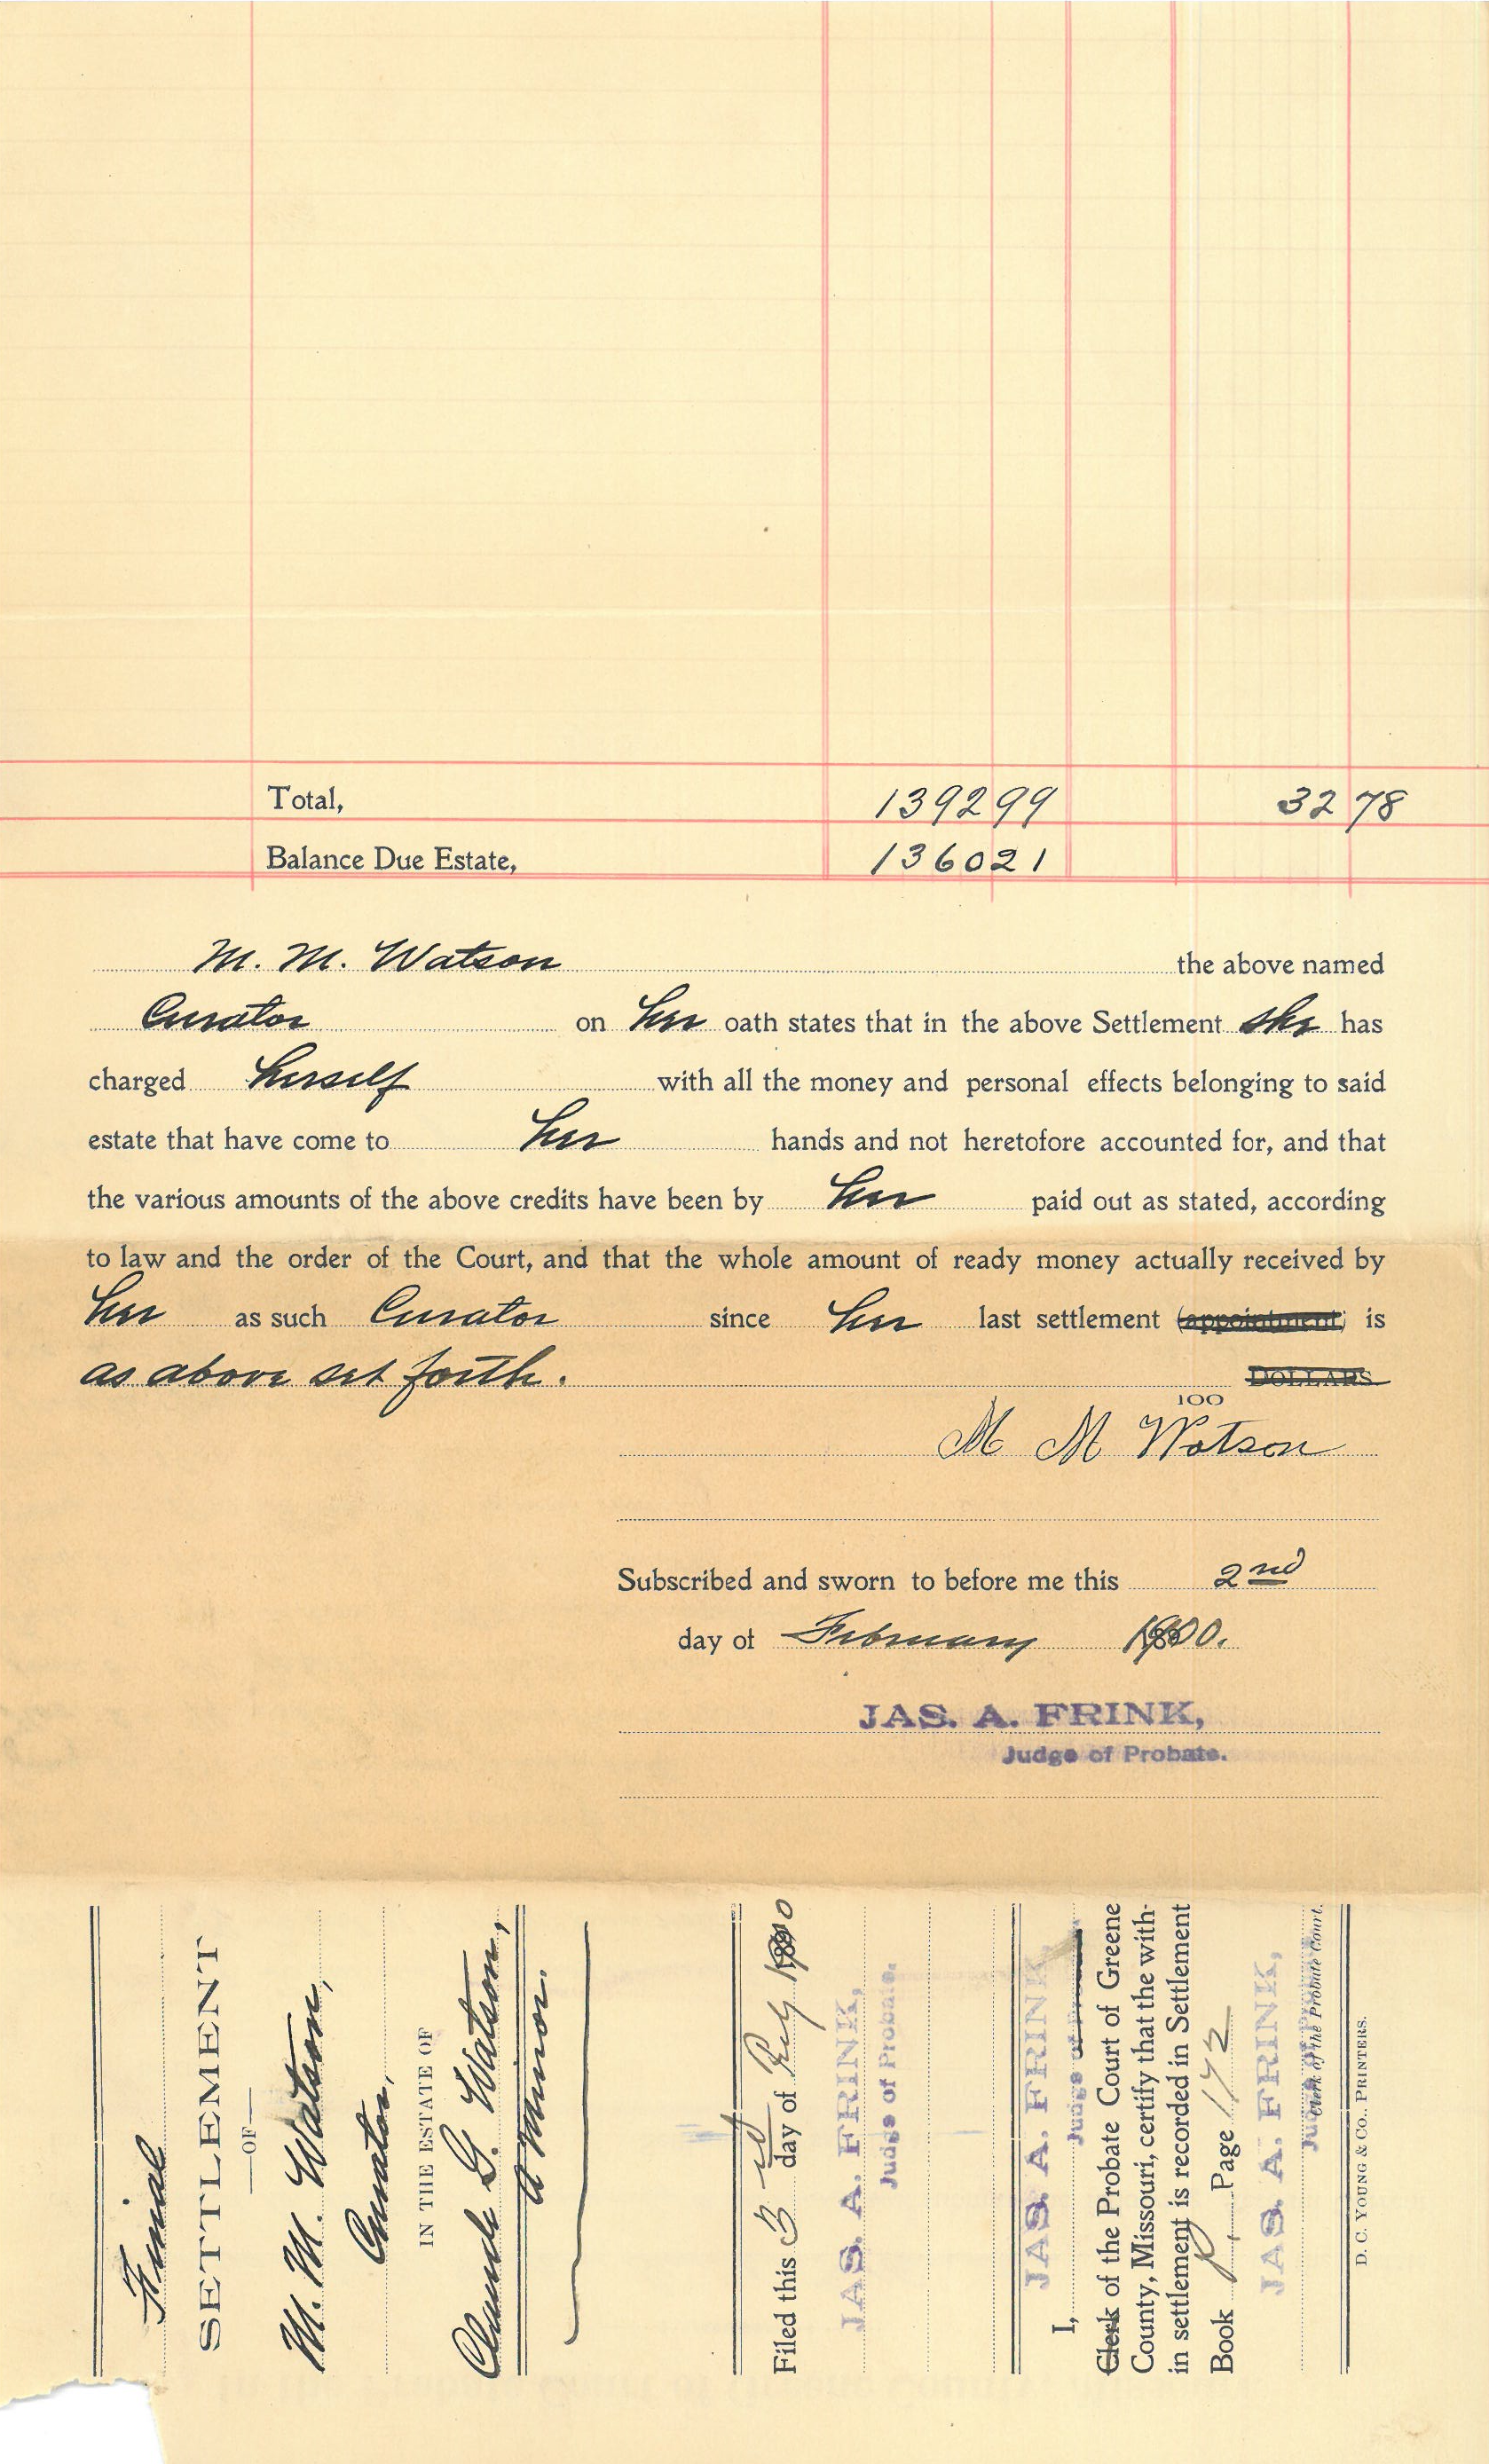 Total, 1392 99 32 78
Balance Due Estate, 1360 21
M. M. Watson the above named
Curator on her oath states that in the above Settlement she has
charged herself with all the money and personal effects belonging to said
estate that have come to her hands and not heretofore accounted for, and that
the various amounts of the above credits have been by her paid out as stated, according
to law and the order of the Court, and that the whole amount of ready money actually received by
her as such Curator since her last settlement (appointment) is
as above set forth. DOLLARS
100
M M Watson
Subscribed and sworn to before me this 2nd
day of February 1900.
JAS. A. FRINK,
Judge of Probate.
Final
SETTLEMENT
—OF—
M. M. Watson,
Curator,
IN THE ESTATE OF
Claude G. Watson,
a Minor.
Filed this 3rd day of Feby 1900
JAS. A. FRINK,
Judge of Probate.
I, JAS. A. FRINK,
Judge of Probate
Clerk of the Probate Court of Greene
County, Missouri, certify that the with-
in settlement is recorded in Settlement
Book P, Page 172
JAS. A. FRINK,
Judge of Probate
Clerk of the Probate Court.
D. C. YOUNG & CO., PRINTERS.